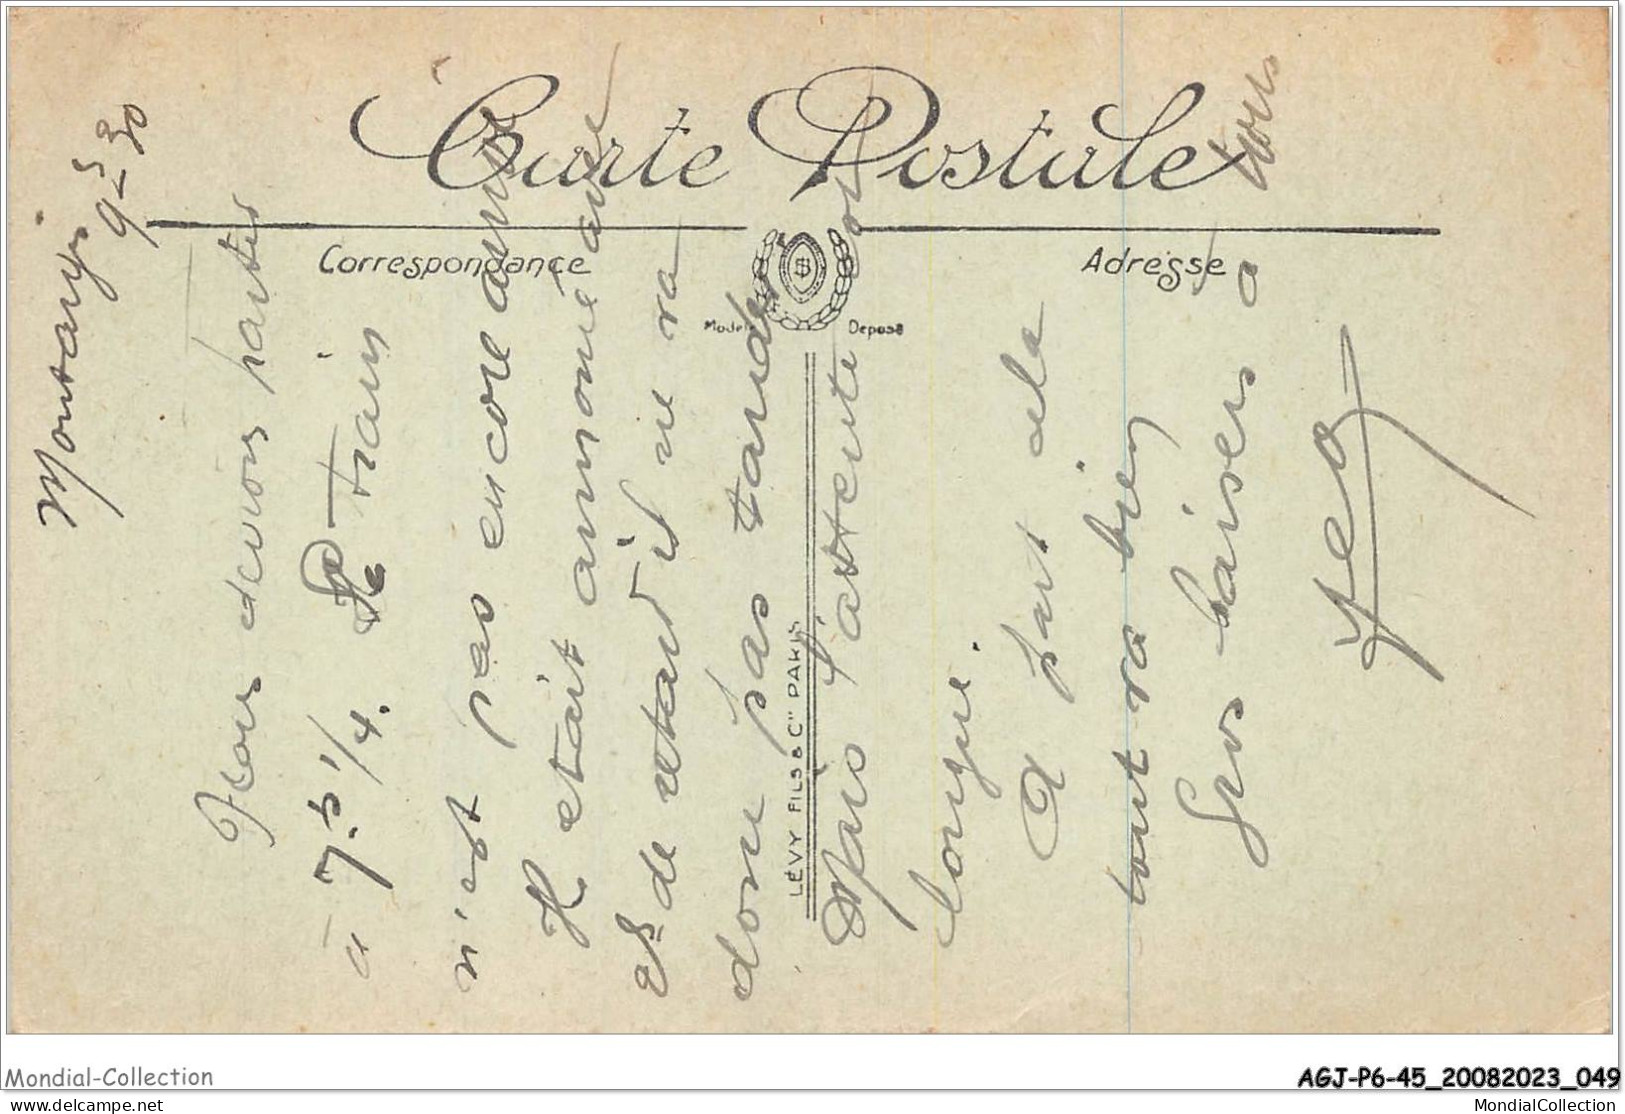 Carte Postale
Correspondance
Adresse
Modèle Déposé
LÉVY FILS & Cie PARIS
Montargis
9-5-30
Nous devions partir
à 7.h 1/4. Le train
n'est pas encore arrivé
Il etait annoncé avec
2h de retard il ne va
donc pas tarder
Mais l'attente
longue.
A part cela
tout va bien
Gros baisers a tous
Mondial-Collection
AGJ-P6-45_20082023_049
www.mondial-collection.com
MondialCollection